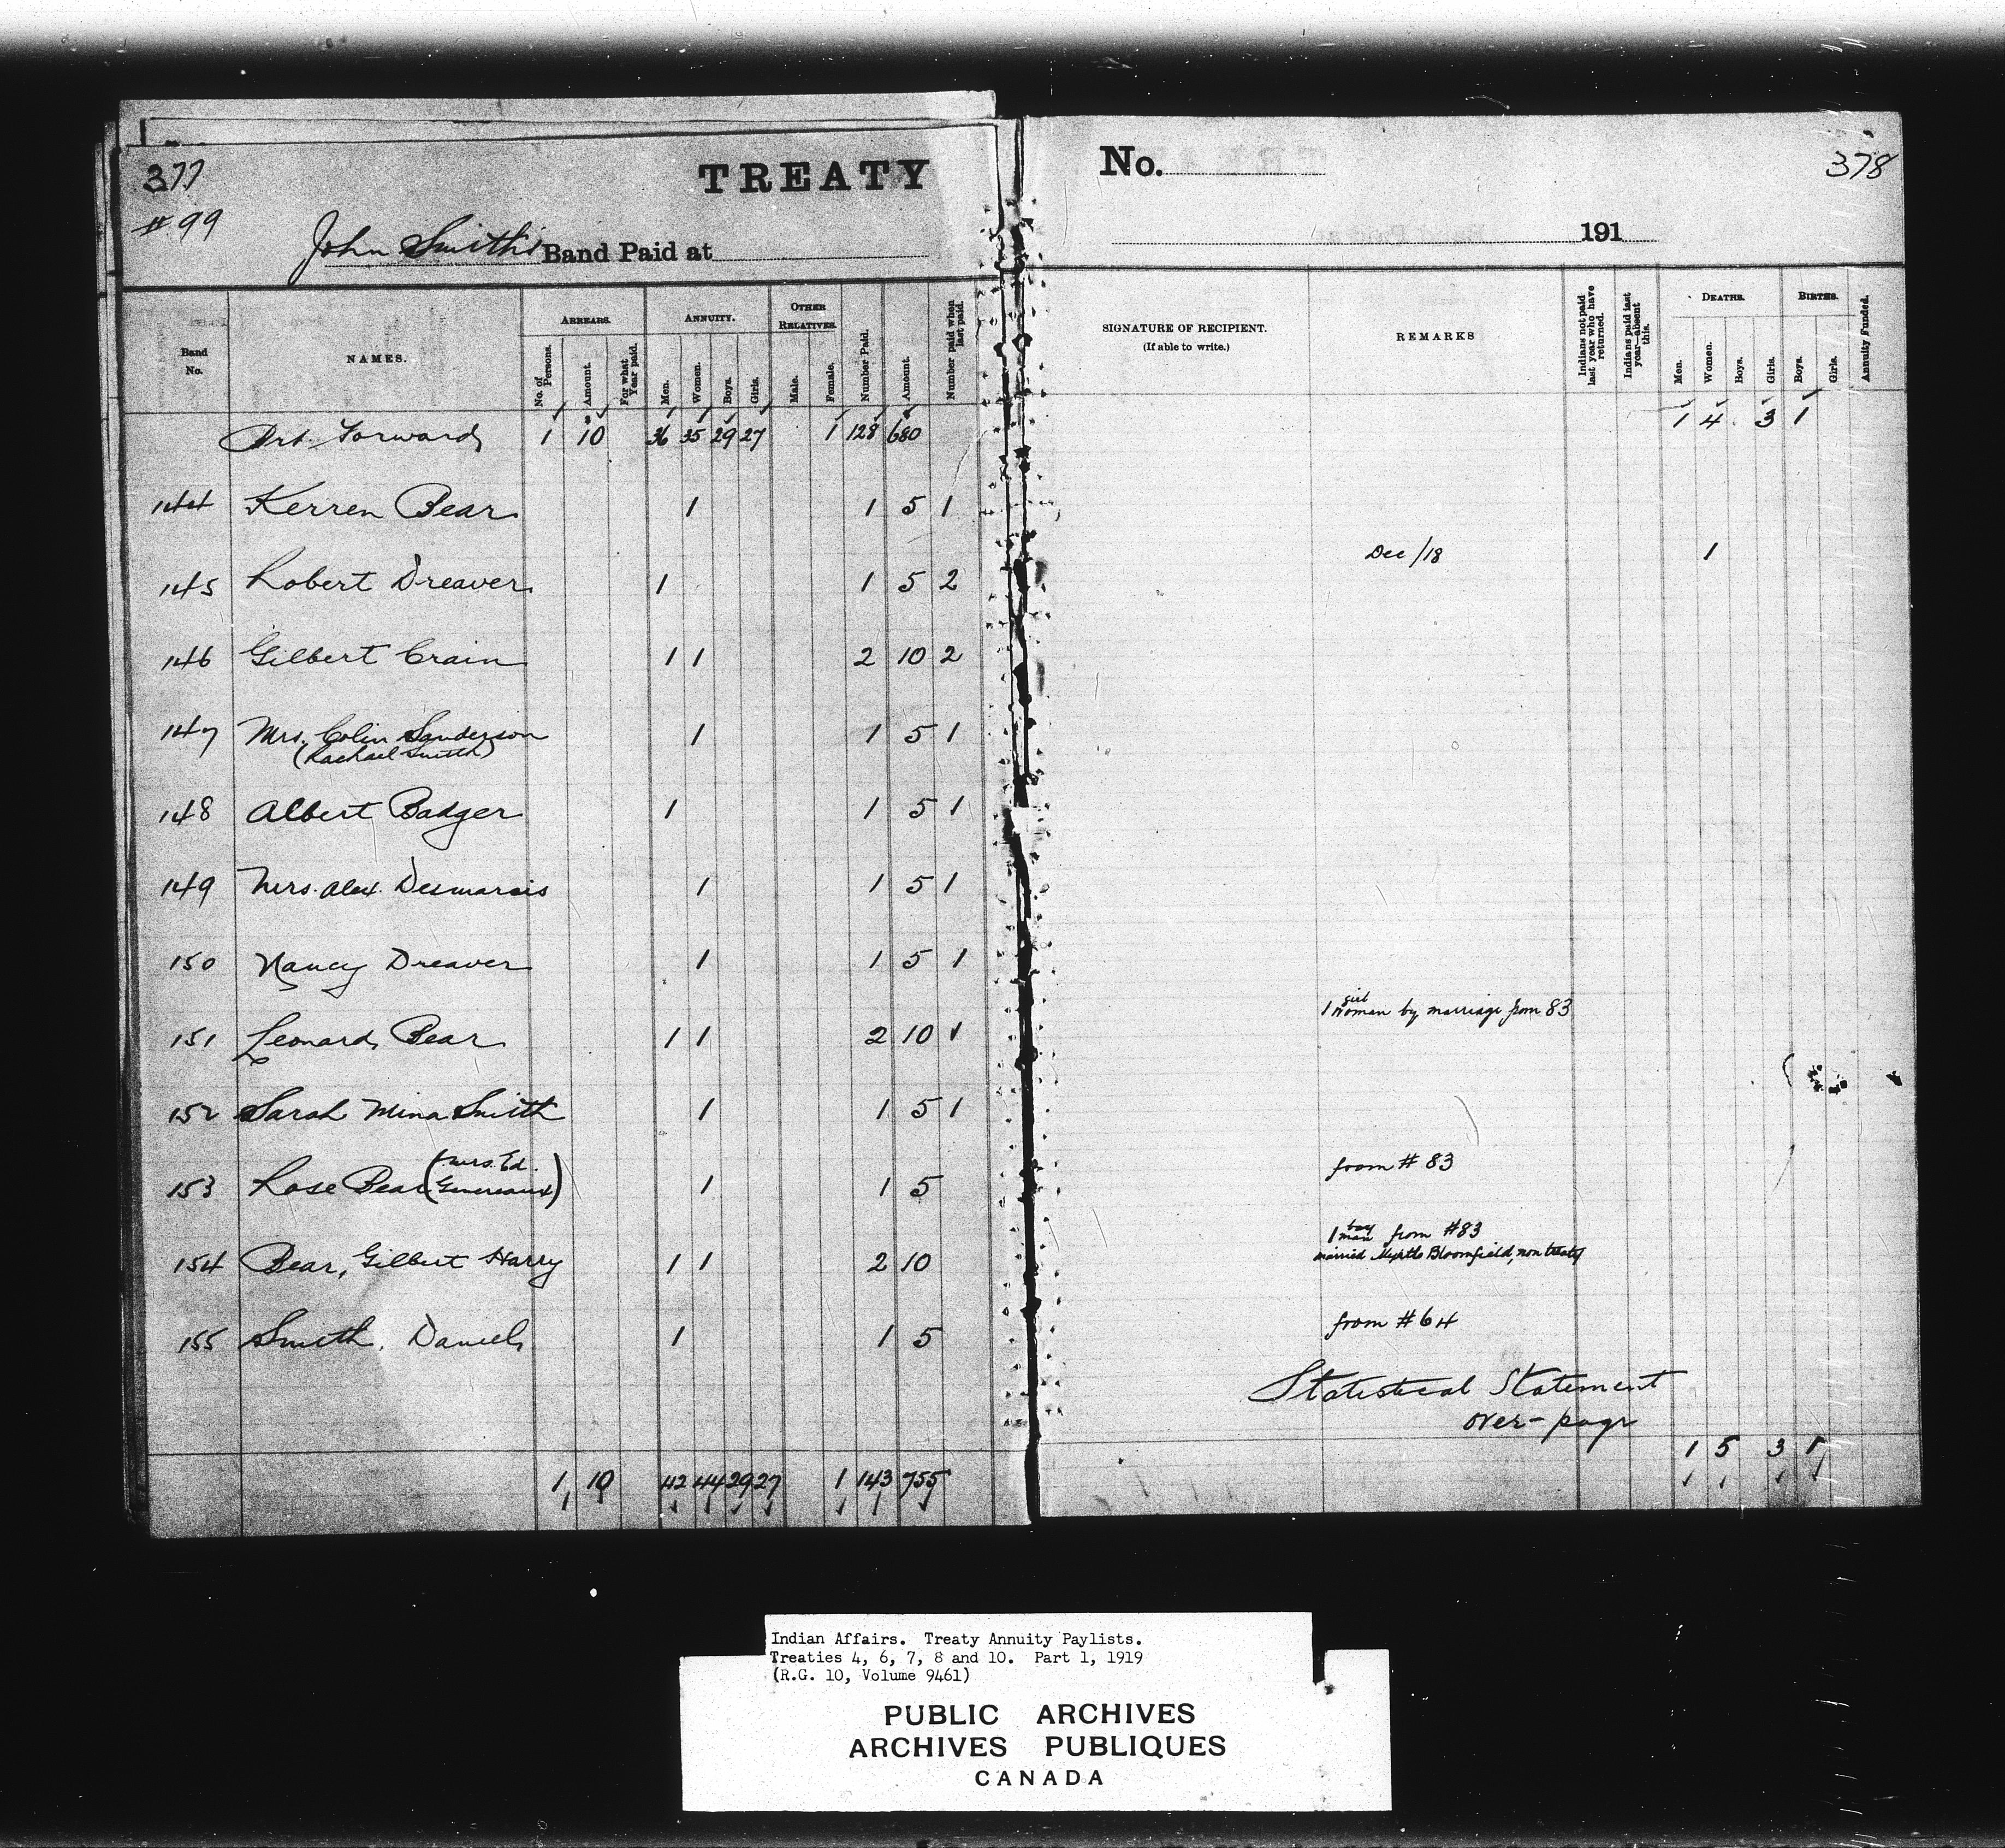 377
TREATY
No.
378
#99
John Smith's Band Paid at
191
Band No.
NAMES.
ARREARS.
No. of Persons.
Amount.
For what Year paid.
ANNUITY.
Men.
Women.
Boys.
Girls.
OTHER RELATIVES.
Male.
Female.
Number Paid.
Amount.
Number paid when last paid.
SIGNATURE OF RECIPIENT.
(If able to write.)
REMARKS
Indians not paid last year who have returned.
Indians paid last year—absent this.
DEATHS.
Men.
Women.
Boys.
Girls.
BIRTHS.
Boys.
Girls.
Annuity Funded.
Brt. Forward 1 10 36 35 29 27 1 128 680 1 4 3 1
144 Kerren Bear 1 1 5 1
145 Robert Dreaver 1 1 5 2 Dec/18 1
146 Gilbert Crain 1 1 2 10 2
147 Mrs. Colin Sanderson 1 1 5 1
(Rachael Smith)
148 Albert Badger 1 1 5 1
149 Mrs. Alex. Desmarais 1 1 5 1
150 Nancy Dreaver 1 1 5 1
girl
151 Leonard Bear 1 1 2 10 1 1 woman by marriage from 83
152 Sarah Mina Smith 1 1 5 1
153 Rose Bear (Mrs. Ed. Genereaux) 1 1 5 from #83
boy
154 Bear, Gilbert Harry 1 1 2 10 1 man from #83
married Myrtle Bloomfield, non treaty
155 Smith, Daniel 1 1 5 from #64
Statistical Statement
over-page
1 10 42 44 29 27 1 143 755 1 5 3 1
Indian Affairs. Treaty Annuity Paylists.
Treaties 4, 6, 7, 8 and 10. Part 1, 1919
(R.G. 10, Volume 9461)
PUBLIC ARCHIVES
ARCHIVES PUBLIQUES
CANADA